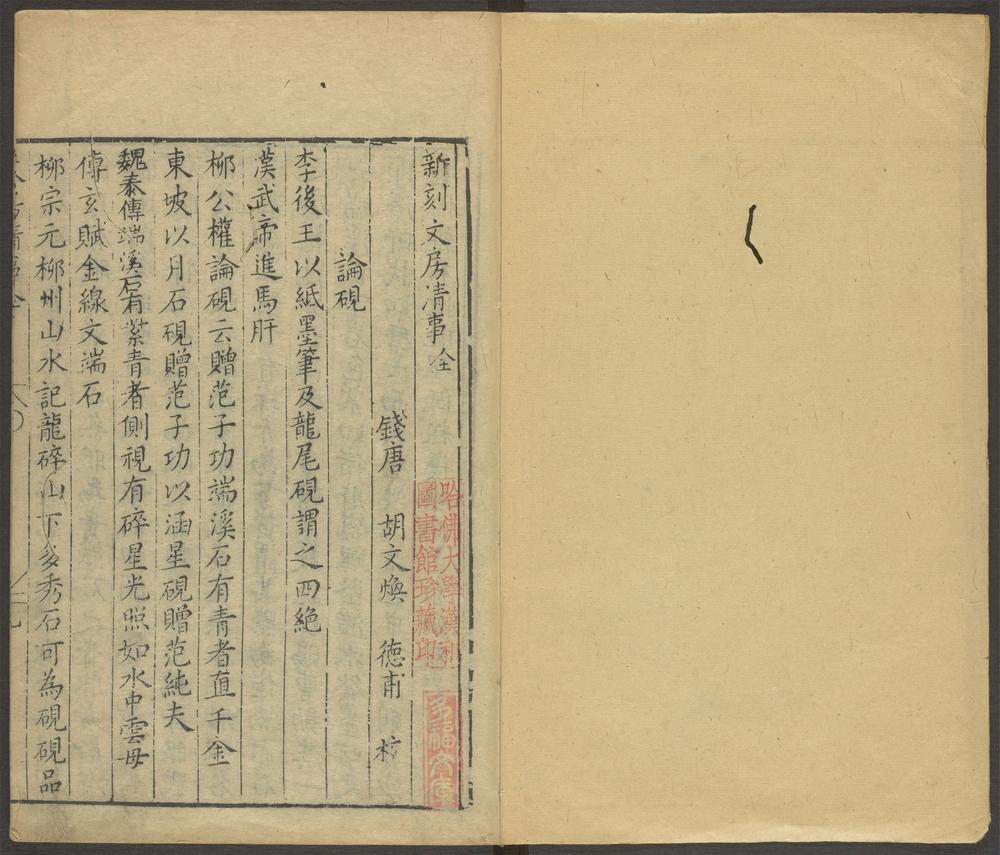 新刻文房清事全
錢唐 胡文煥 德甫 校
論硯
李後王以紙墨筆及龍尾硯謂之四絶
漢武帝進馬肝
柳公權論硯云贈范子功端溪石有青者直千金
東坡以月石硯贈范子功以涵星硯贈范純夫
魏泰傳端溪石有紫青者側視有碎星光照如水中雲母
傅玄賦金線文端石
柳宗元柳州山水記龍碎山下多秀石可為硯硯品
哈佛大學漢和
圖書館珍藏印
多福文庫